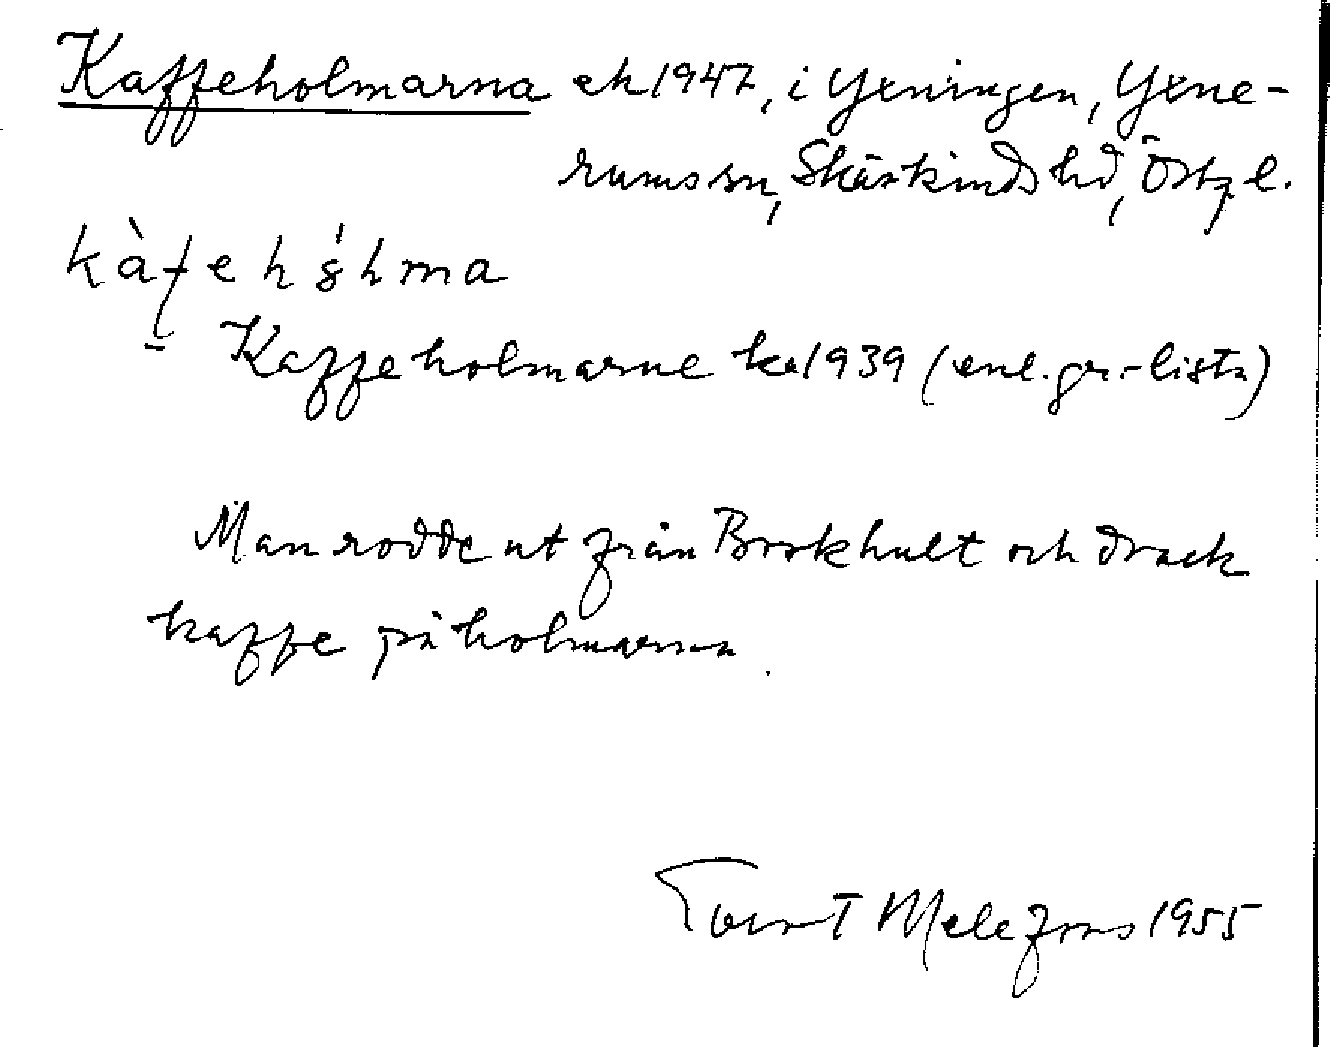 Kaffeholmarna ek 1947, i Yxningen, Yxne-
rums sn, Skärkinds hd, Östg. l.
kàfehólma
Kaffeholmarne ka 1939 (enl. gr.-lista)
Man rodde ut från Brokhult och drack
kaffe på holmarna.
Evert Melefors 1955